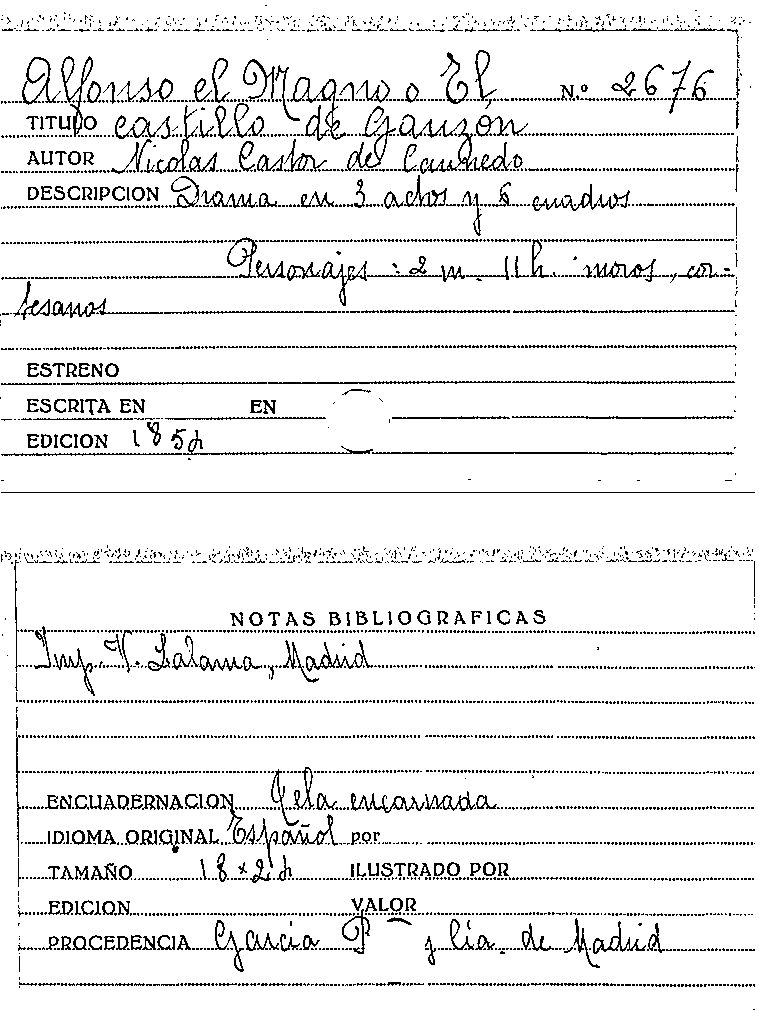 Alfonso el Magno o El N.º 2676
TITULO castillo de Gauzón
AUTOR Nicolas Castor de Caunedo
DESCRIPCION Drama en 3 actos y 6 cuadros
Personajes : 2 m. 11 h. moros, cor-
tesanos
ESTRENO
ESCRITA EN EN
EDICION 185
NOTAS BIBLIOGRAFICAS
Imp. V. Lalama, Madrid
ENCUADERNACION Tela encarnada
IDIOMA ORIGINAL Español por
TAMAÑO 18 x 2 ILUSTRADO POR
EDICION VALOR
PROCEDENCIA García P y Cia. de Madrid